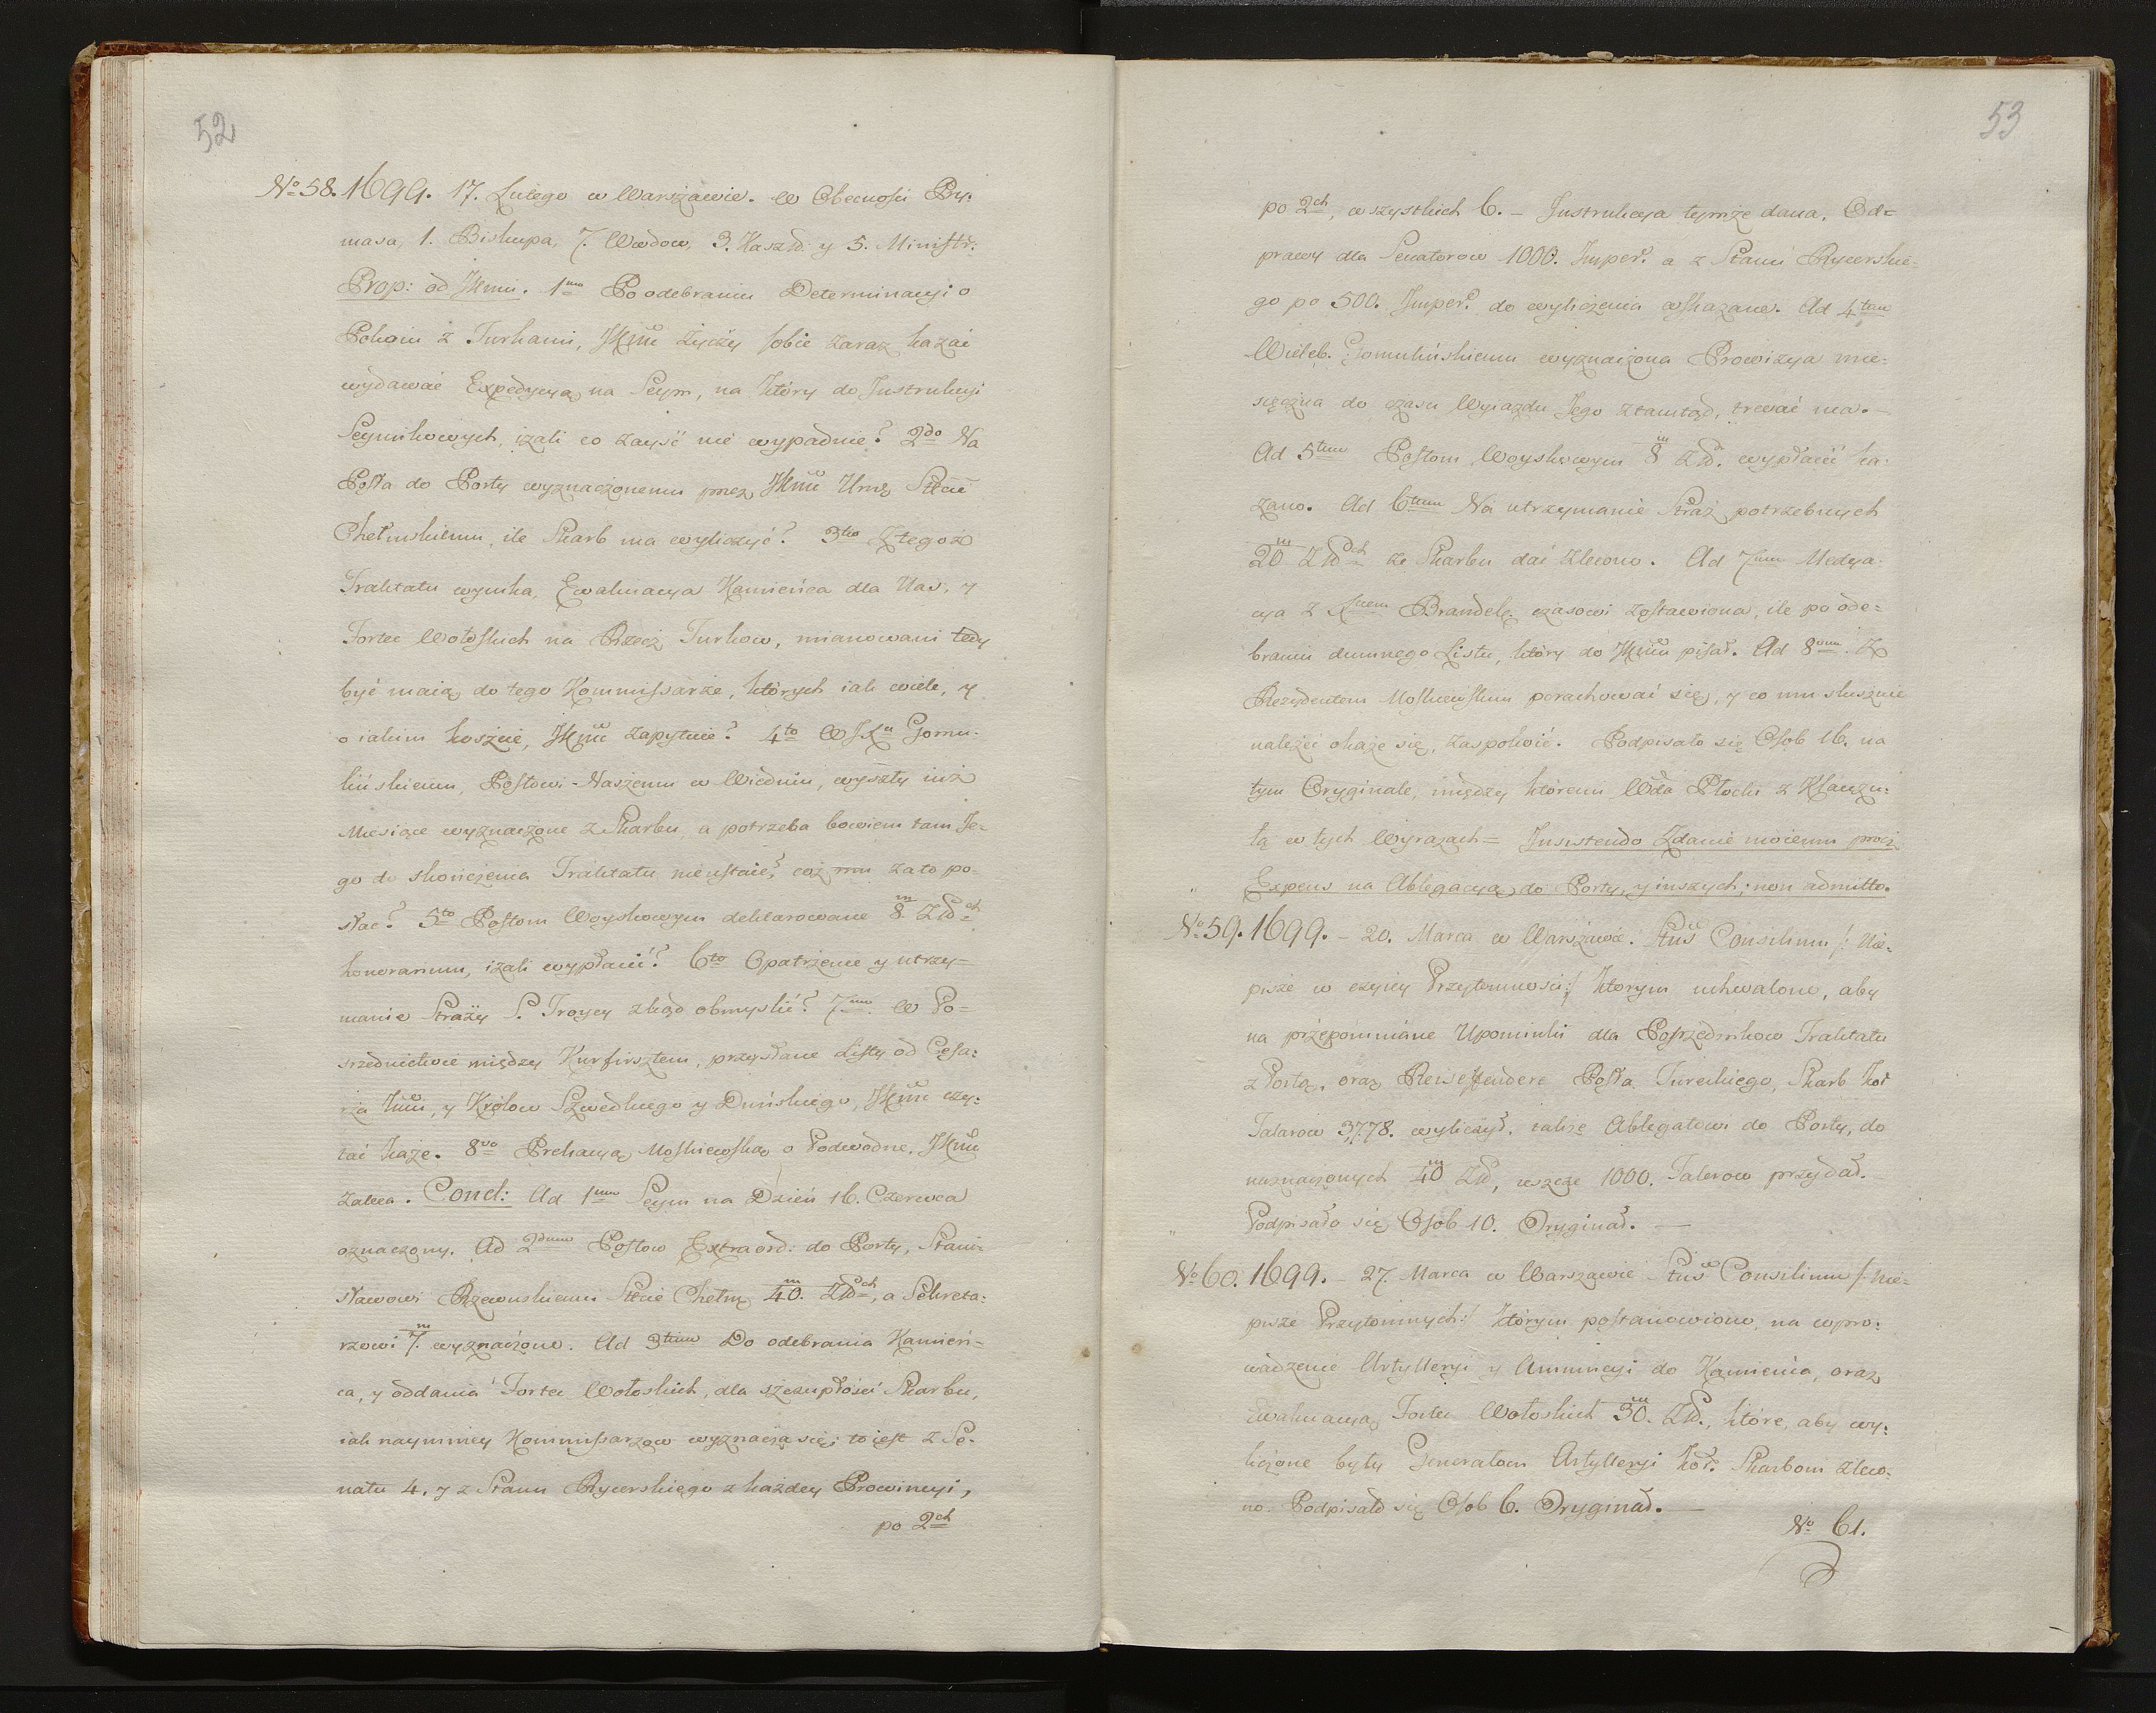 52
No 58. 1699. 17. Lutego w Warszawie. w Obecnosci Pry:
masa, 1. Biskupa, 7. Wwdow, 3. Kaszt: y 5. Ministr:
Prop: od JKmci. 1mo Po odebraniu Determinacyi o
Pokoiu z Turkami, JKmć życzy sobie zaraz kazać
wydawać Expedycyą na Seym, na który do Instrukcyi
Seymikowych, izali co zayść nie wypadnie? 2do Na
Posła do Porty wyznaczonemu przez JKmć Urną Sttcie
Chełmskiemu, ile Skarb ma wyliczyć? 3tio Z tegoż
Traktatu wynika, Ewakuacya Kamieńca dla Nas, y
Fortec Wołoskich na Rzecz Turkow, mianowani tedy
być maią do tego Kommissarze, których iak wiele, y
o iakim koszcie, JKmć zapytuie? 4to W JXu Gomu-
lińskiemu, Posłowi Naszemu w Wiedniu, wyszły iuż
Miesiące wyznaczone z Skarbu, a potrzeba bowiem tam Je-
go do skończenia Traktatu nieustaie, coż mu za to po-
słać? 5to Posłom Woyskowym deklarowane 8m Złch
honorarium, izali wypłacić? 6to Opatrzenie y utrzy=
manie Straży S. Troycy zkąd obmyslić? 7mo W Po=
srzednictwie między Kurfirsztem, przysłane Listy od Cesa:
rza Jmci, y Krolow Szwedkiego y Duńskiego, JKmć czy:
tać każe. 8vo Prekacyą Moskiewską o Podwodne, JKmć
zaleca. Concl: Ad 1mum Seym na Dzień 16. Czerwca
oznaczony. Ad 2dum Posłow Extraord: do Porty, Stani-
sławowi Rzewuskiemu Sttcie Chełm 40.m Złch, a Sekreta:
rzowi 7.m wyznaczono. Ad 3tium Do odebrania Kamień-
ca, y oddania Fortec Wołoskich, dla szczupłości Skarbu,
iak naymniey Kommissarzow wyznacza się; to iest z Se-
natu 4. y z Stanu Rycerskiego z każdey Prowincyi,
po 2ch
53
po 2ch, wszystkich 6. – Instrukcya tymże dana. Od=
prawy dla Senatorow 1000. Imper. a z Stanu Rycerskie-
go po 500. Imper. do wyliczenia wskazane. Ad 4tum
Wieleb. Gomulińskiemu wyznaczona Prowizya mie-
sięczna do czasu Wyiazdu Jego ztamtąd, trwać ma. –
Ad 5tum Posłom Woyskowym 8m Zł. wypłacić ka-
zano. Ad 6tum Na utrzymanie Straż potrzebnych
20m Złch ze Skarbu dać zlecono. Ad 7mum Medya-
cya z Xciem Brandeb: czasowi zostawiona, ile po ode-
braniu dumnego Listu, który do JKmci pisał. Ad 8vum. Z
Rezydentem Moskiewskim porachować się, y co mu słusznie
należeć okaże się, zaspokoić. Podpisało się Osob 16. na
tym Oryginale, między któremi Wda Płocki z Klauzu:
lą w tych Wyrazach= Insistendo Zdanie moiemu prócz
Expens na Ablegacyą do Porty, y inszych; non admitto.
No 59. 1699. – 20. Marca w Warszawie. Stus Consilium /: Nie-
pisze w czyiey Przytomnosci:/ którym uchwalono, aby
na przepomniane Upominki dla Posrzednikow Traktatu
z Portą, oraz Reiseffendere Posła Tureckiego, Skarb kor
Talarow 3,778. wyliczył, także Ablegatowi do Porty, do
naznaczonych 40m Zł, ieszcze 1000. Talerow przydał.
Podpisało się Osob 10. Oryginał. –
No 60. 1699. – 27. Marca w Warszawie Stus Consilium /: Nie-
pisze Przytomnych:/ którym postanowiono, na wpro:
wadzenie Artylleryi y Ammunicyi do Kamieńca, oraz
Ewakuacyą Fortec Wołoskich 30m. Zł., które, aby wy:
liczone były Generałom Artylleryi kor. Skarbom zleco-
no. Podpisało się Osob 6. Oryginał. –
No 61.